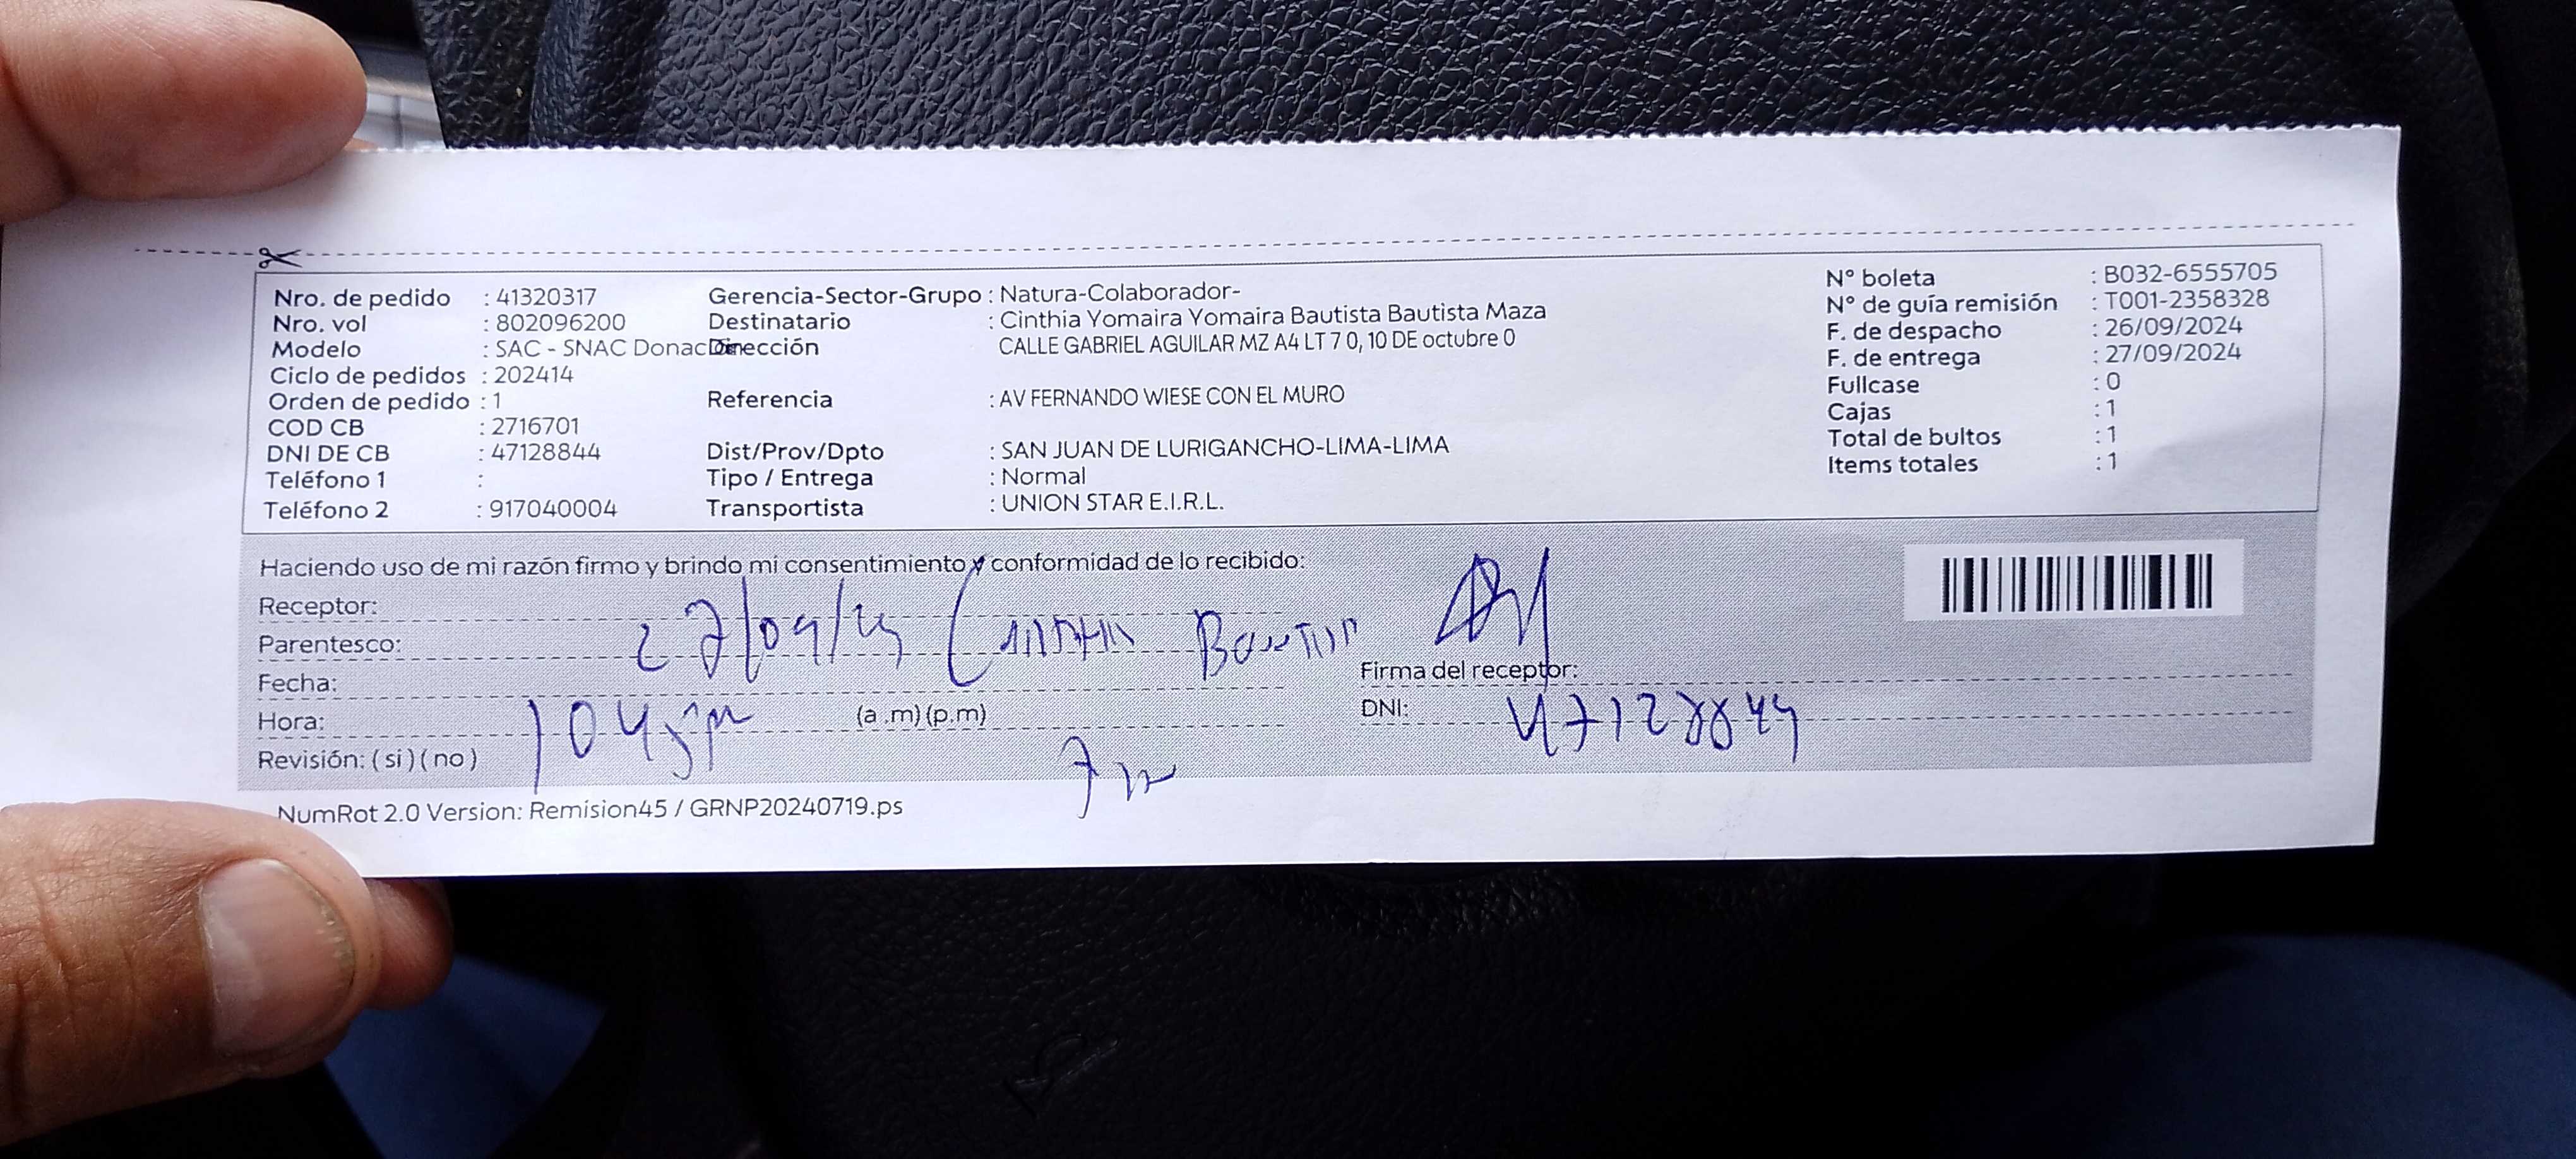 Nro. de pedido : 41320317
Nro. vol : 802096200
Modelo : SAC - SNAC Donac
Ciclo de pedidos : 202414
Orden de pedido : 1
COD CB : 2716701
DNI DE CB : 47128844
Teléfono 1 :
Teléfono 2 : 917040004
Gerencia-Sector-Grupo : Natura-Colaborador-
Destinatario : Cinthia Yomaira Yomaira Bautista Bautista Maza
Dirección CALLE GABRIEL AGUILAR MZ A4 LT 7 0, 10 DE octubre 0
Referencia : AV FERNANDO WIESE CON EL MURO
Dist/Prov/Dpto : SAN JUAN DE LURIGANCHO-LIMA-LIMA
Tipo / Entrega : Normal
Transportista : UNION STAR E.I.R.L.
N° boleta : B032-6555705
N° de guía remisión : T001-2358328
F. de despacho : 26/09/2024
F. de entrega : 27/09/2024
Fullcase : 0
Cajas : 1
Total de bultos : 1
Items totales : 1
Haciendo uso de mi razón firmo y brindo mi consentimiento y conformidad de lo recibido:
Receptor:
Parentesco: 27/09/24
Fecha:
Hora: (a .m) (p.m)
Revisión: ( si ) ( no )
Firma del receptor:
DNI: 47128844
NumRot 2.0 Version: Remision45 / GRNP20240719.ps